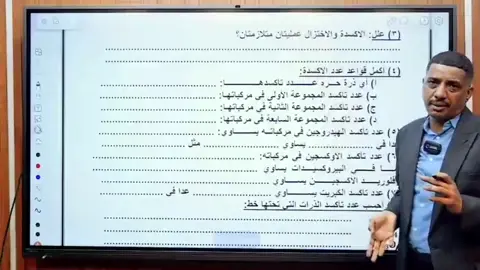 (٣) علل: الأكسدة والاختزال عمليتان متلازمتان؟
(٤) أكمل قواعد عدد الأكسدة:
أ) أي ذرة حره عدد تأكسدها:
ب) عدد تأكسد المجموعة الأولى في مركباتها:
ج) عدد تأكسد المجموعة الثانية في مركباتها:
د) عدد تأكسد المجموعة السابعة في مركباتها:
٥) عدد تأكسد الهيدروجين في مركباته يساوي:
عدا في يساوي مثل
٦) عدد تأكسد الأوكسجين في مركباته:
في البيروكسيدات يساوي
فلوريد الأكسجين يساوي
عدد تأكسد الكبريت يساوي عدا في
أحسب عدد تأكسد الذرات التي تحتها خط: